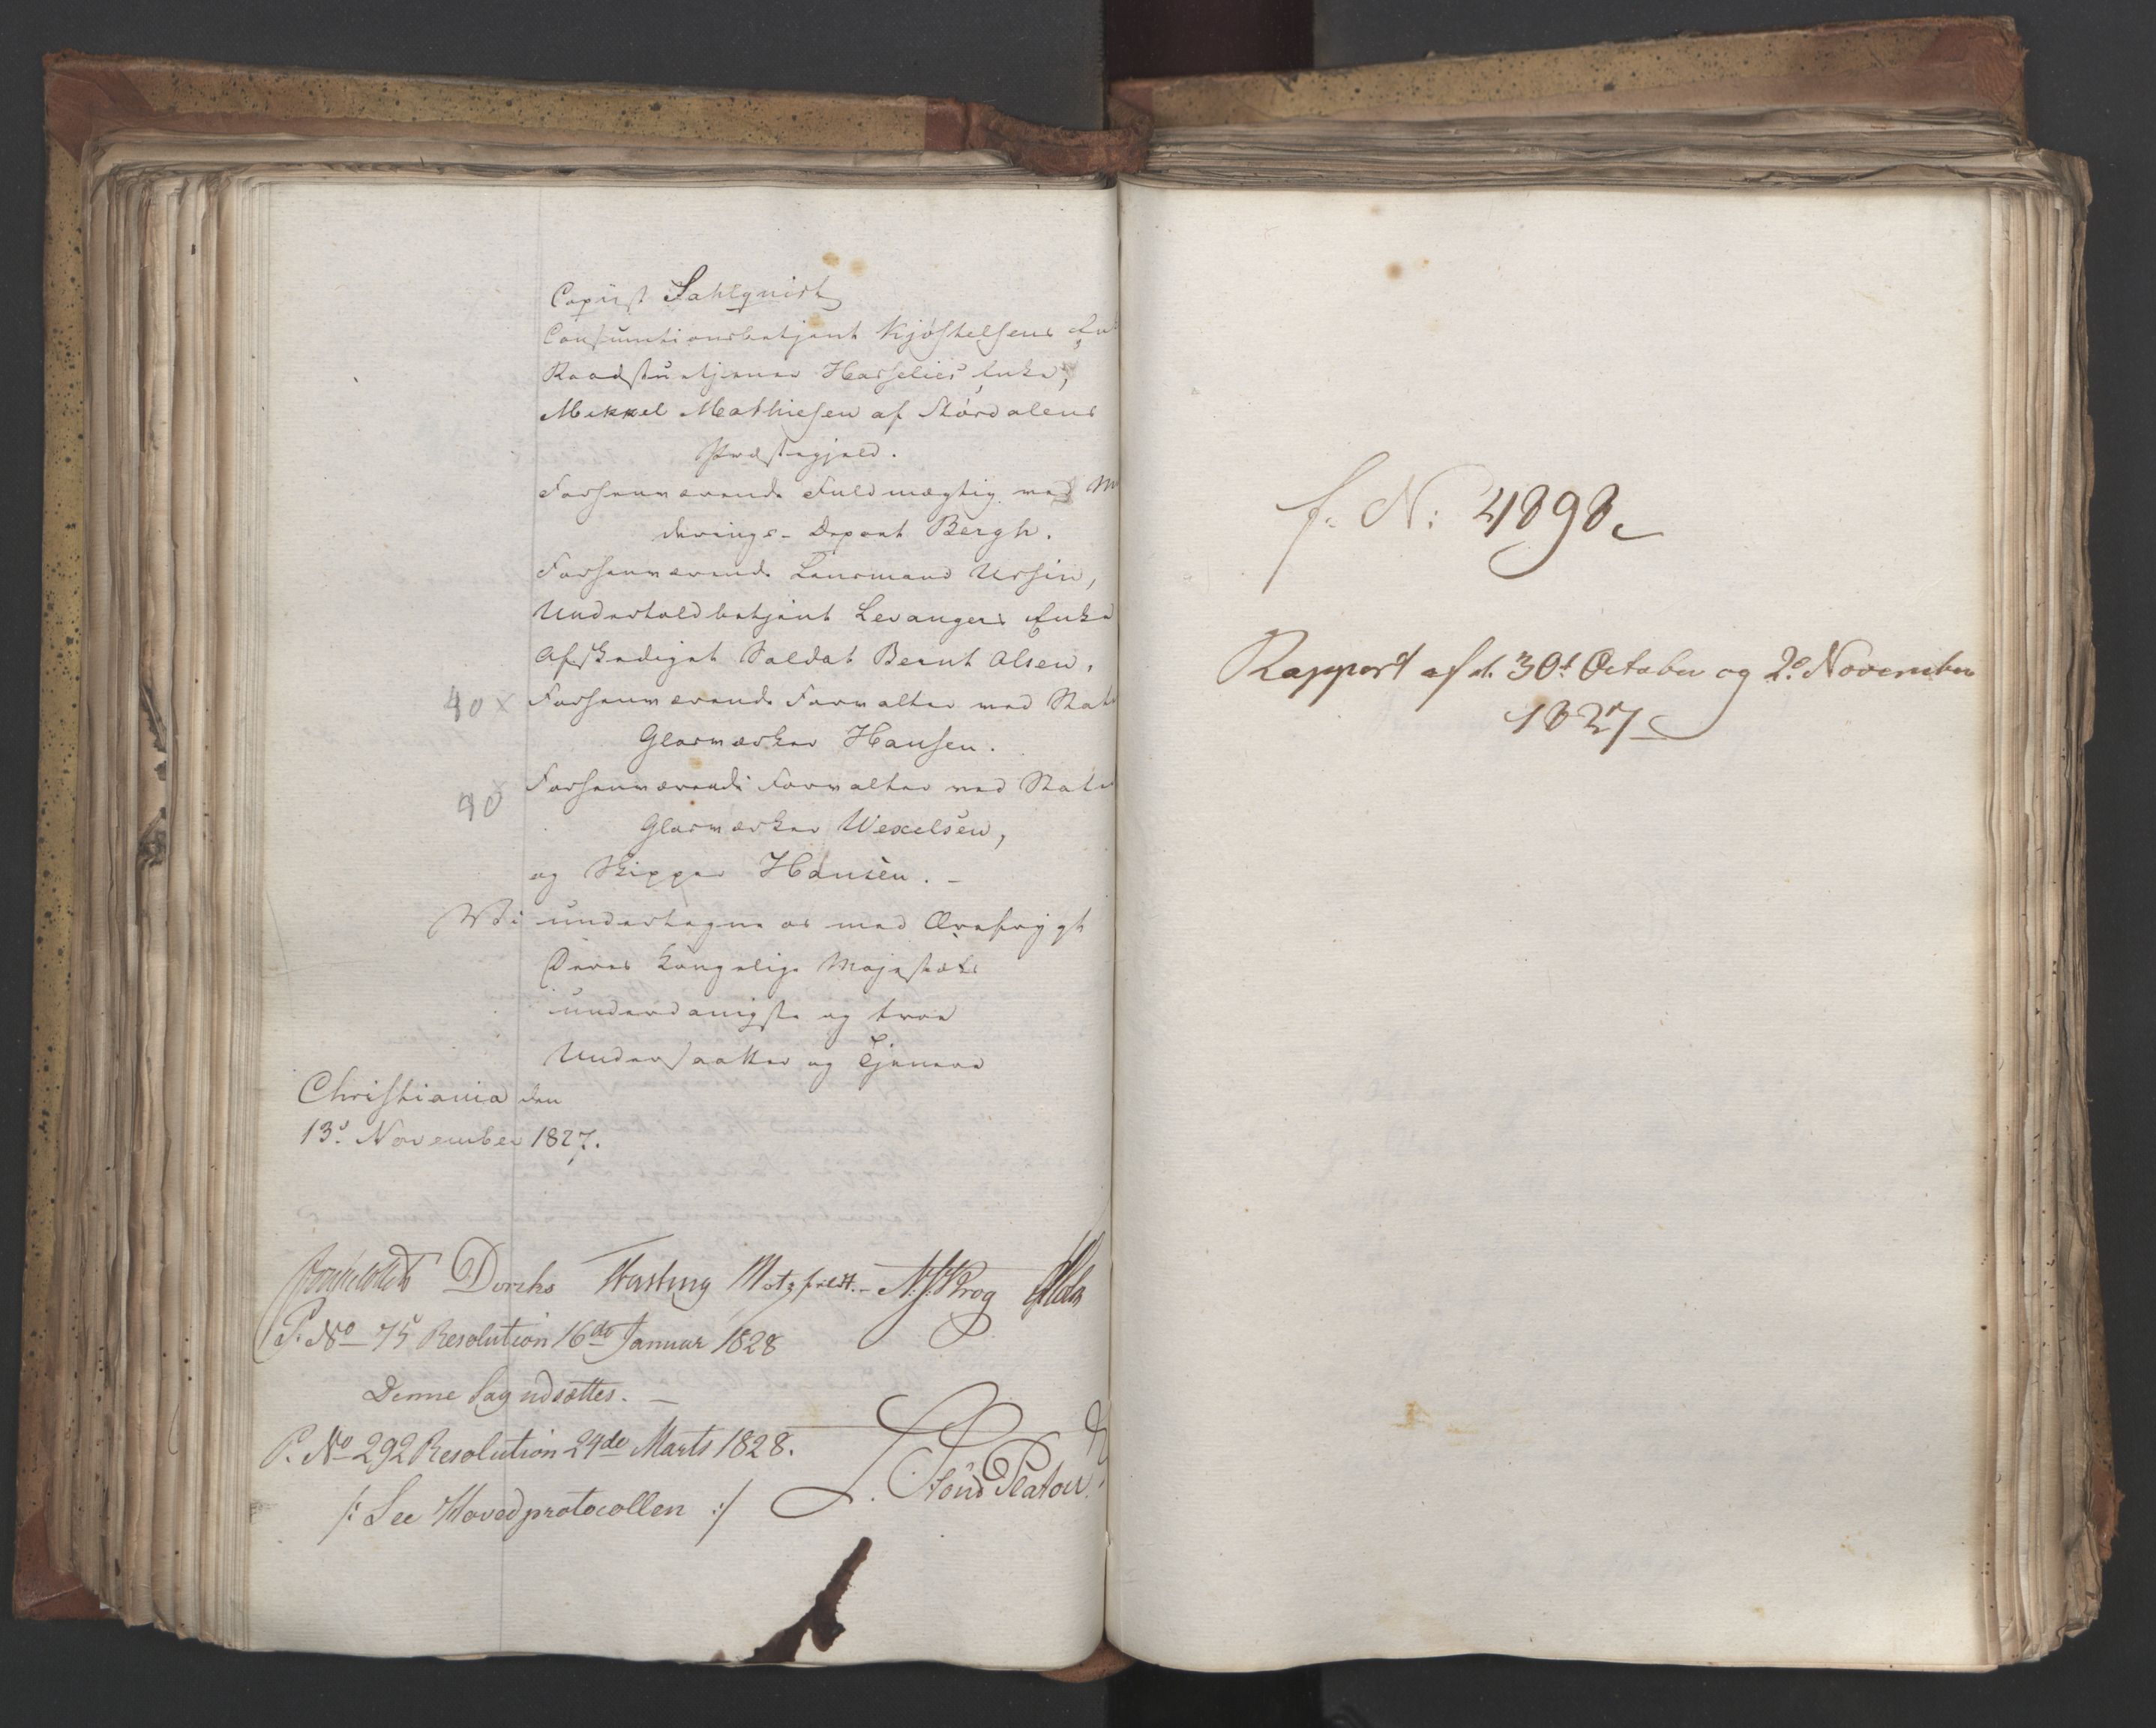 Copiist Sahlqvist
Consumtionsbetjent Kjøstelsens
Raadstuetjener Hasselies Enke,
Mikkel Mathiesen af Størdalens
Præstegjeld.
Forhenværende Fuldmægtig ved
derings-Depart Bergh.
Forhenværende Lensmand Ursin,
Undertoldbetjent Levangers Enke
Afskediget Soldat Bernt Olsen,
40 x Forhenværende Forvalter ved Stat
Glasværker Hansen.
40 x Forhenværende Forvalter ved Stat
Glasværker Wexelsen,
og Skipper Hansen. -
Vi undertegne os med Ærefrygt
Deres Kongelige Majestæts
underdanigste og troe
Undersaatter og Tjenere
Christiania den
13d November 1827.
Collett Diriks Fasting Motzfeldt. - N. J. Krog Holst
P. No 75 Resolution 16de Januar 1828
Denne Sag udsættes. -
P. No 292 Resolution 24de Marts 1828.
/: See Hovedprotocollen :/
Platou.
f. N: 4898
Rapport af d. 30t October og 2d November
1827